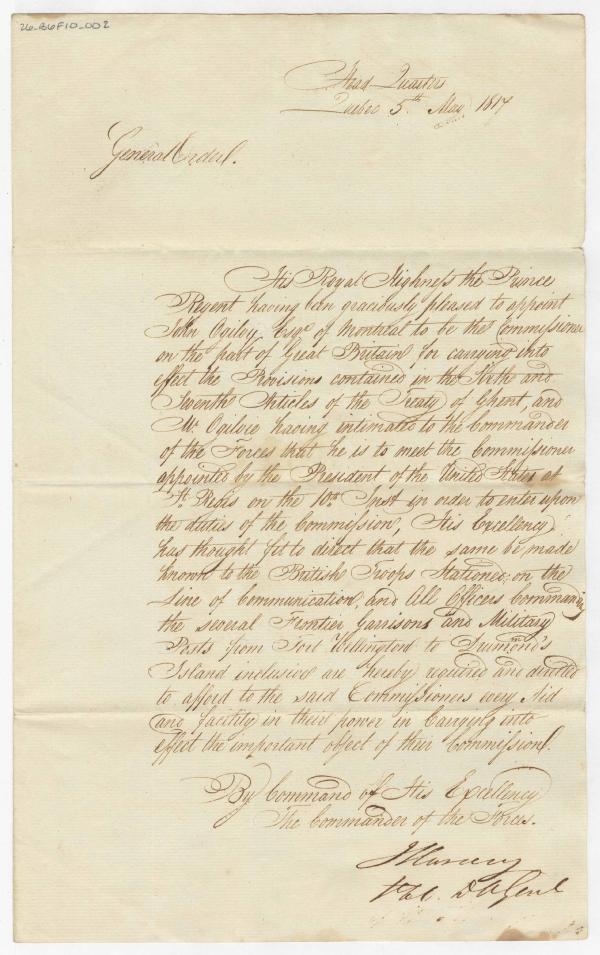 26-B6F10-002
Head Quarters
Quebec 5th May 1817
General Order.
His Royal Highness the Prince
Regent having been graciously pleased to appoint
John Ogilvy Esqr of Montreal to be the Commissioner
on the part of Great Britain, for carrying into
effect the Provisions contained in the Sixth and
Seventh Articles of the Treaty of Ghent, and
Mr Ogilvie having intimated to the Commander
of the Forces that he is to meet the Commissioner
appointed by the President of the United States at
St Regis on the 10th Inst in order to enter upon
the duties of the Commission, His Excellency
has thought fit to direct that the same be made
known to the British Troops Stationed on the
Line of Communication, and All Officers Commanding
the several Frontier Garrisons and Military
Posts from Fort Wellington to Drummond's
Island inclusive are hereby required and directed
to afford to the said Commissioners every Aid
and facility in their power in Carrying into
effect the important object of their Commission.
By Command of His Excellency
The Commander of the Forces.
J Harvey
Lt Col. D A Genl